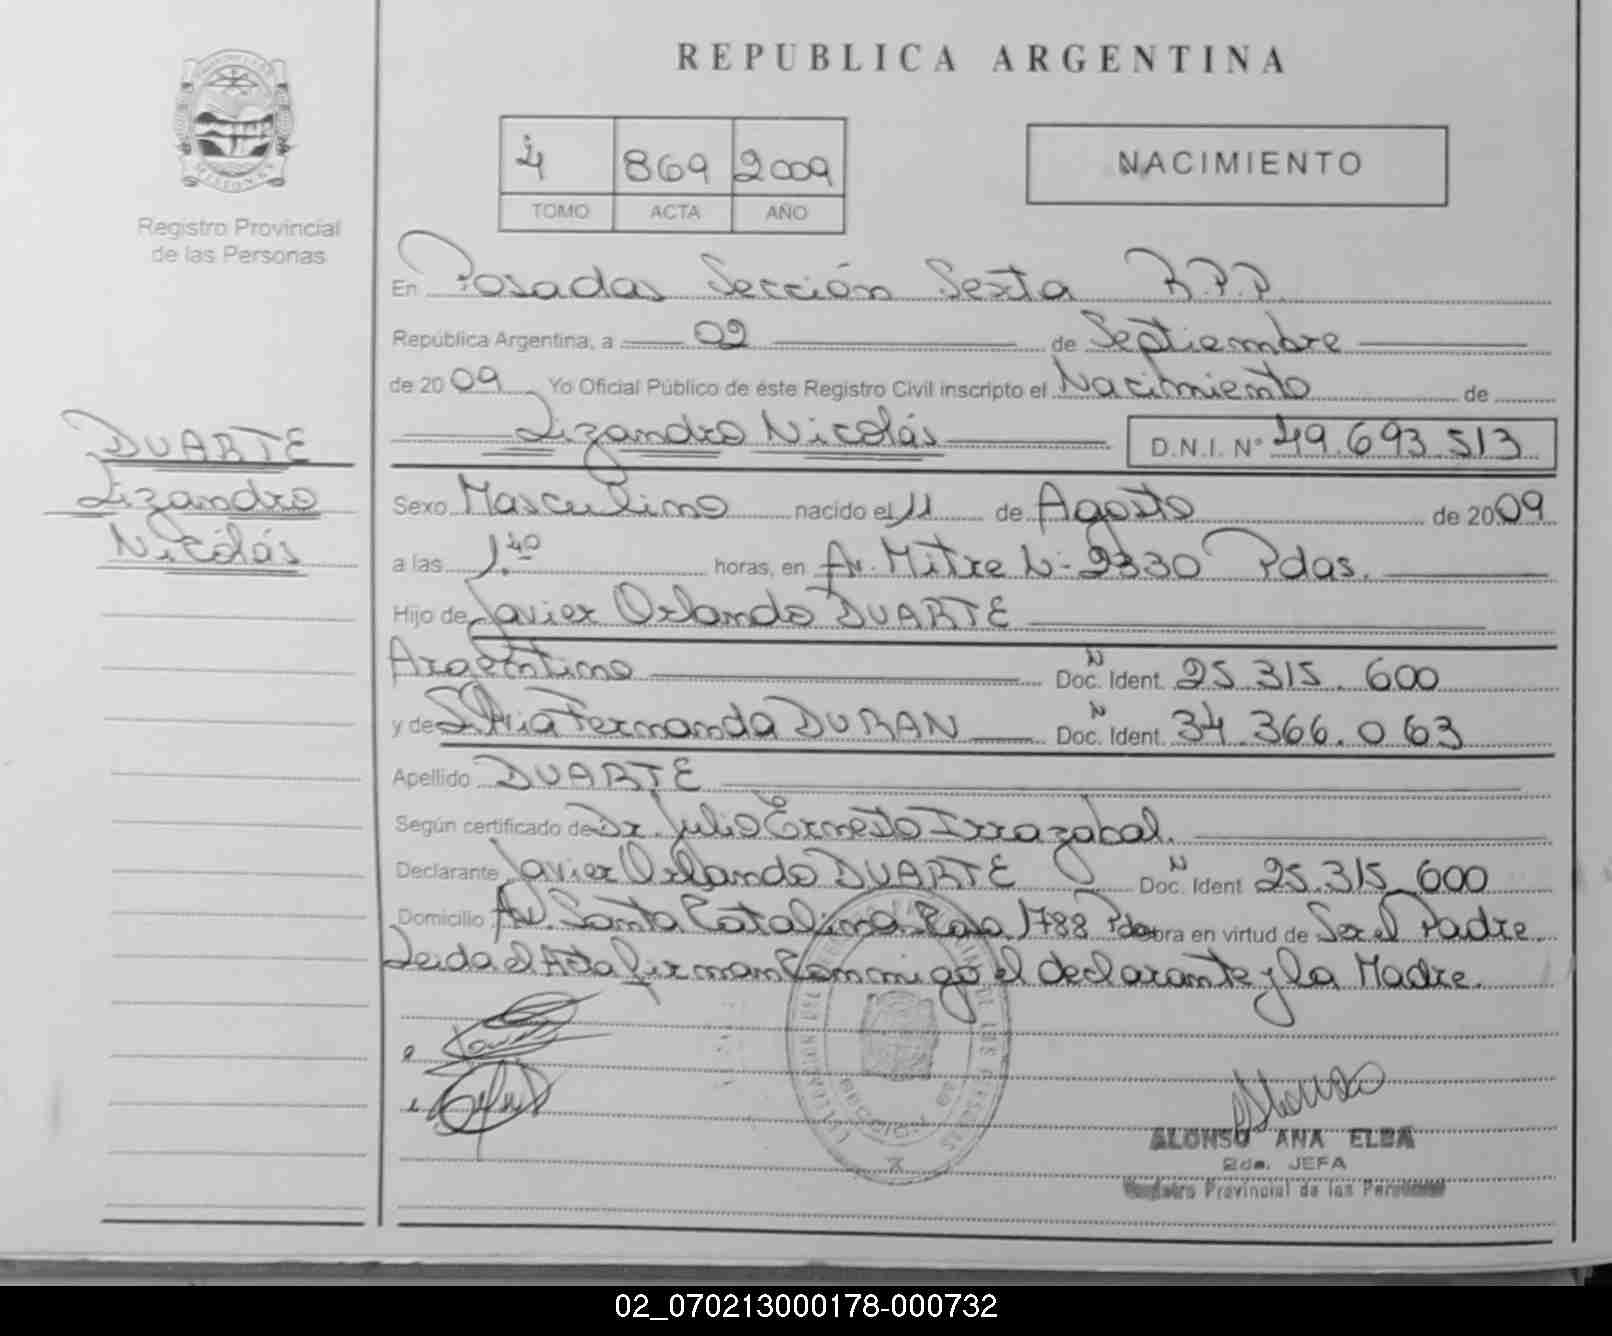 REPUBLICA ARGENTINA
4 869 2009
TOMO ACTA AÑO
NACIMIENTO
MISIONES
Registro Provincial
de las Personas
DUARTE
Lizandro
Nicolás
En Posadas Sección Sexta R.P.P.
República Argentina, a 02 de Septiembre
de 2009 Yo Oficial Público de éste Registro Civil inscripto el Nacimiento de
Lizandro Nicolás D.N.I. Nº 49.693.513
Sexo Masculino nacido el 11 de Agosto de 2009
a las 1.40 horas, en Av. Mitre Nº 2330 Pdas.
Hijo de Javier Orlando DUARTE
Argentino Doc. Ident. N 25.315.600
y de Silvia Fernanda DURAN Doc. Ident. N 34.366.063
Apellido DUARTE
Según certificado de Dr. Julio Ernesto Irrazabal.
Declarante Javier Orlando DUARTE Doc. Ident N 25.315.600
Domicilio Av. Santa Catalina Casa 1788 Pdas obra en virtud de Ser el Padre
Leida el Acta firman conmigo el declarante y la Madre.
ALONSO ANA ELBA
2da. JEFA
Registro Provincial de las Personas
02_070213000178-000732